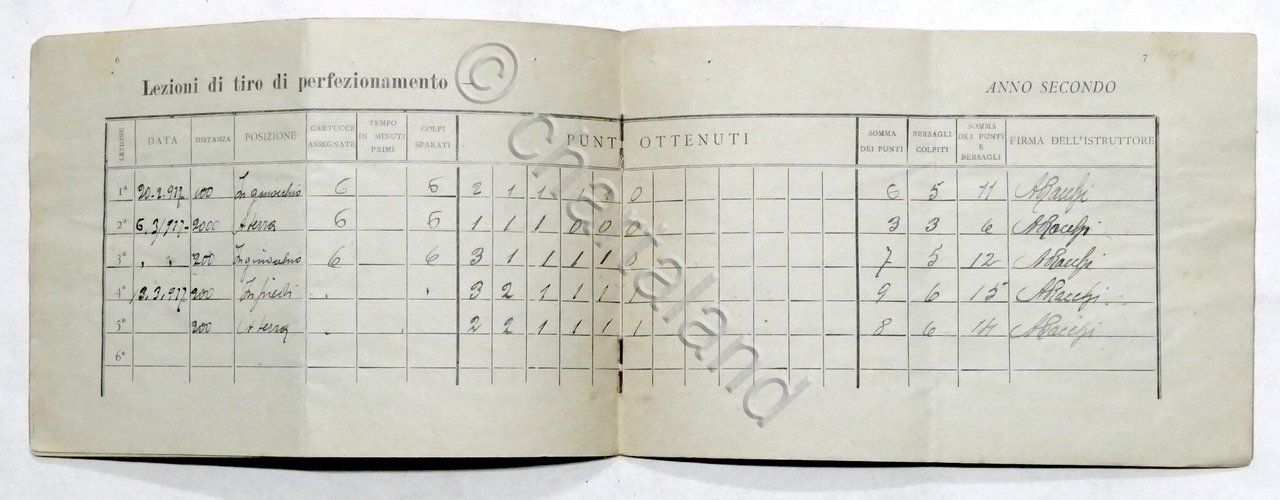 6
7
Lezioni di tiro di perfezionamento —
ANNO SECONDO
LEZIONE DATA DISTANZA POSIZIONE CARTUCCE ASSEGNATE TEMPO IN MINUTI PRIMI COLPI SPARATI PUNTI OTTENUTI SOMMA DEI PUNTI BERSAGLI COLPITI SOMMA DEI PUNTI E BERSAGLI FIRMA DELL'ISTRUTTORE
1ª 20.2.917 100 In ginocchio 6 6 2 1 1 1 1 0 6 5 11
2ª 6.3/917- 2000 A terra 6 6 1 1 1 0 0 0 3 3 6
3ª " " 200 In ginocchio 6 6 3 1 1 1 1 0 7 5 12
4ª 3.3.917 200 In piedi 3 2 1 1 1 1 9 6 15
5ª 200 A terra 2 2 1 1 1 1 8 6 14
6ª
© chartaland